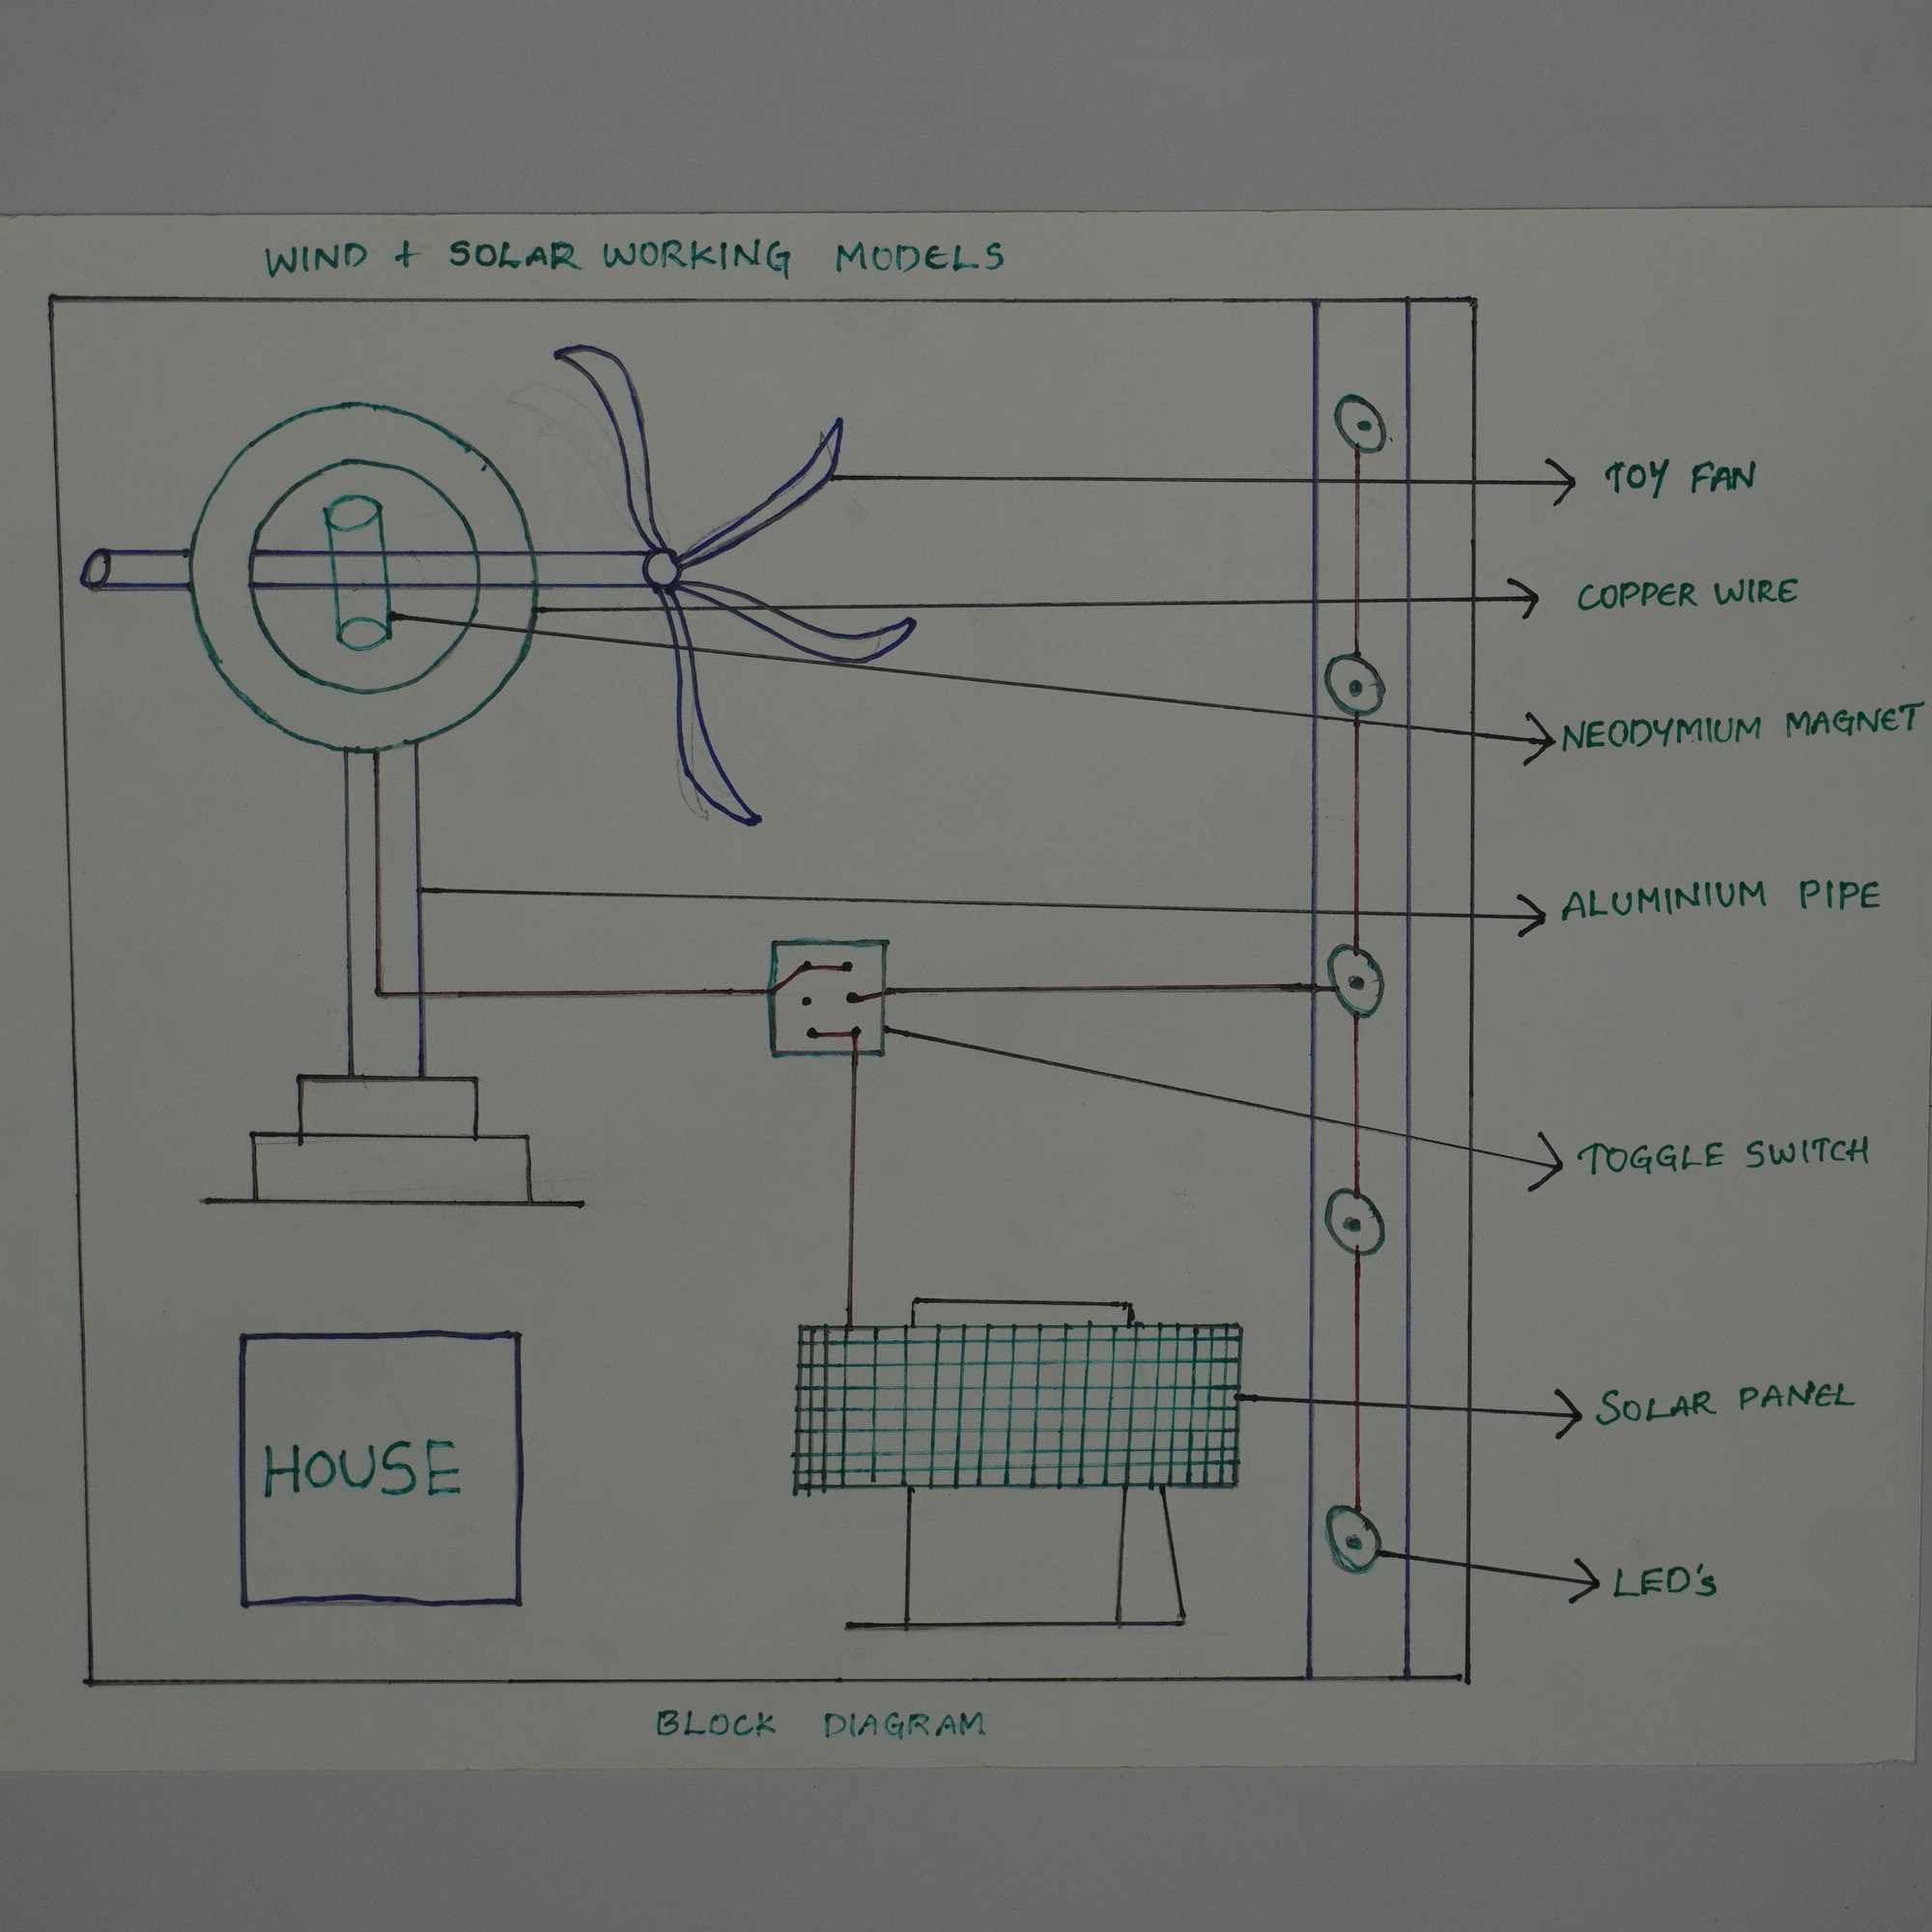 WIND + SOLAR WORKING MODELS
TOY FAN
COPPER WIRE
NEODYMIUM MAGNET
ALUMINIUM PIPE
TOGGLE SWITCH
SOLAR PANEL
HOUSE
LED's
BLOCK DIAGRAM